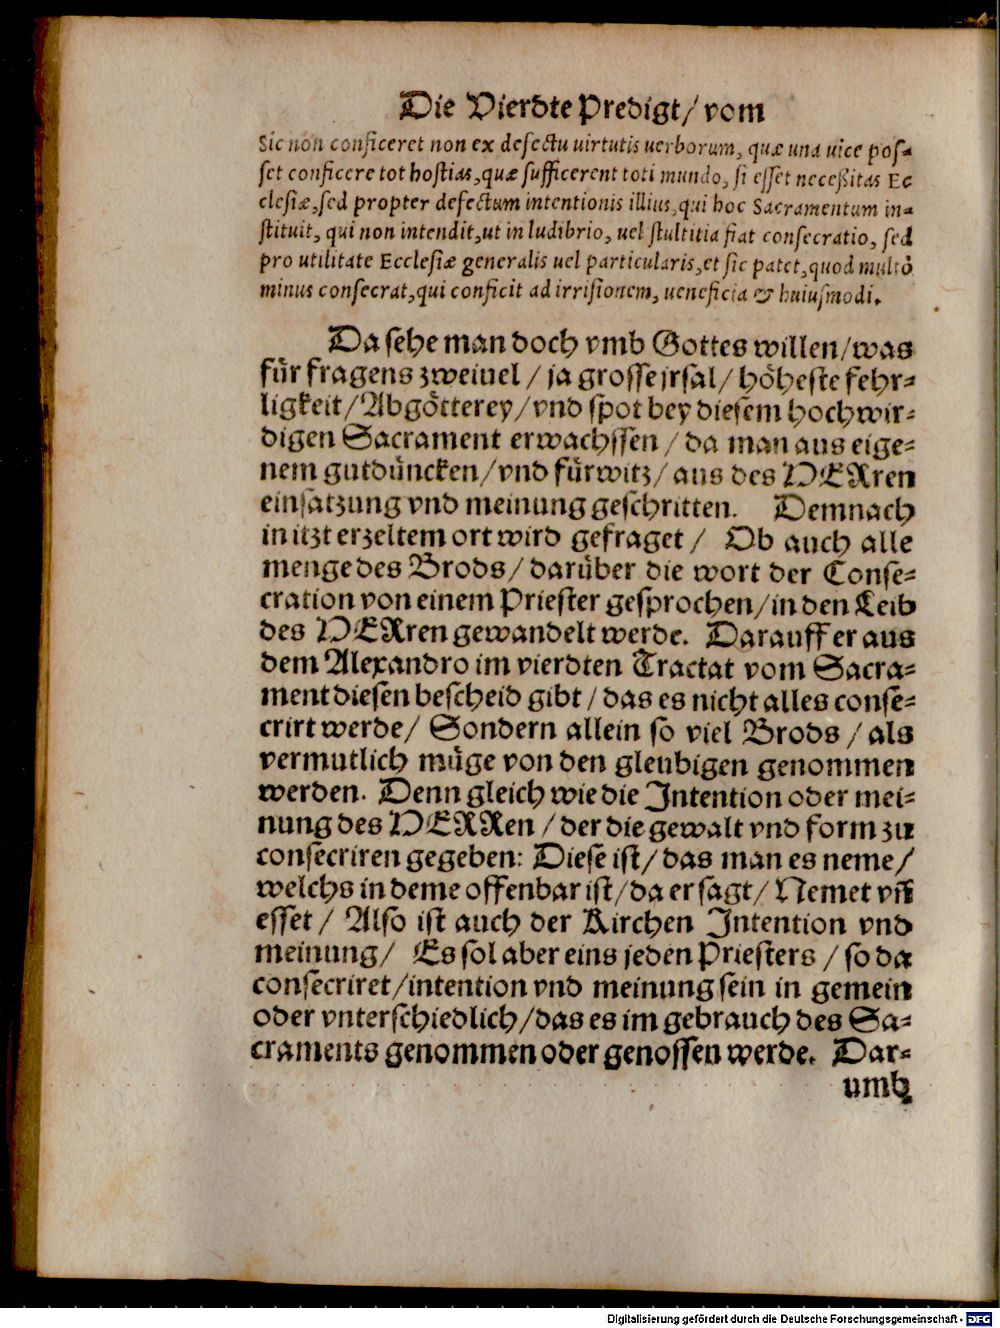 Die Vierdte Predigt/ vom
Sic non conficeret non ex defectu uirtutis uerborum, quæ una uice pos-
set conficere tot hostias, quæ sufficerent toti mundo, si esset neceßitas Ec
clesiæ, sed propter defectum intentionis illius, qui hoc Sacramentum in-
stituit, qui non intendit, ut in ludibrio, uel stultitia fiat consecratio, sed
pro utilitate Ecclesiæ generalis uel particularis, et sic patet, quod multò
minus consecrat, qui conficit ad irrisionem, ueneficia & huiusmodi.
Da sehe man doch vmb Gottes willen/was
für fragens zweiuel / ja grosse jrsal/ höheste fehr-
ligkeit/Abgötterey/vnd spot bey diesem hochwir-
digen Sacrament erwachssen / da man aus eige-
nem gutdüncken/vnd fürwitz/ aus des HERren
einsatzung vnd meinung geschritten. Demnach
in itzt erzeltem ort wird gefraget / Ob auch alle
menge des Brods/ darüber die wort der Conse-
cration von einem Priester gesprochen/in den Leib
des HERren gewandelt werde. Darauff er aus
dem Alexandro im vierdten Tractat vom Sacra-
ment diesen bescheid gibt / das es nicht alles conse-
crirt werde/ Sondern allein so viel Brods / als
vermutlich müge von den gleubigen genommen
werden. Denn gleich wie die Intention oder mei-
nung des HERRen / der die gewalt vnd form zu
consecriren gegeben: Diese ist/ das man es neme/
welchs in deme offenbar ist/da er sagt/ Nemet vñ
esset / Also ist auch der Kirchen Intention vnd
meinung/ Es sol aber eins jeden Priesters / so da
consecriret/intention vnd meinung sein in gemein
oder vnterschiedlich/das es im gebrauch des Sa-
craments genommen oder genossen werde. Dar-
umb
Digitalisierung gefördert durch die Deutsche Forschungsgemeinschaft - DFG